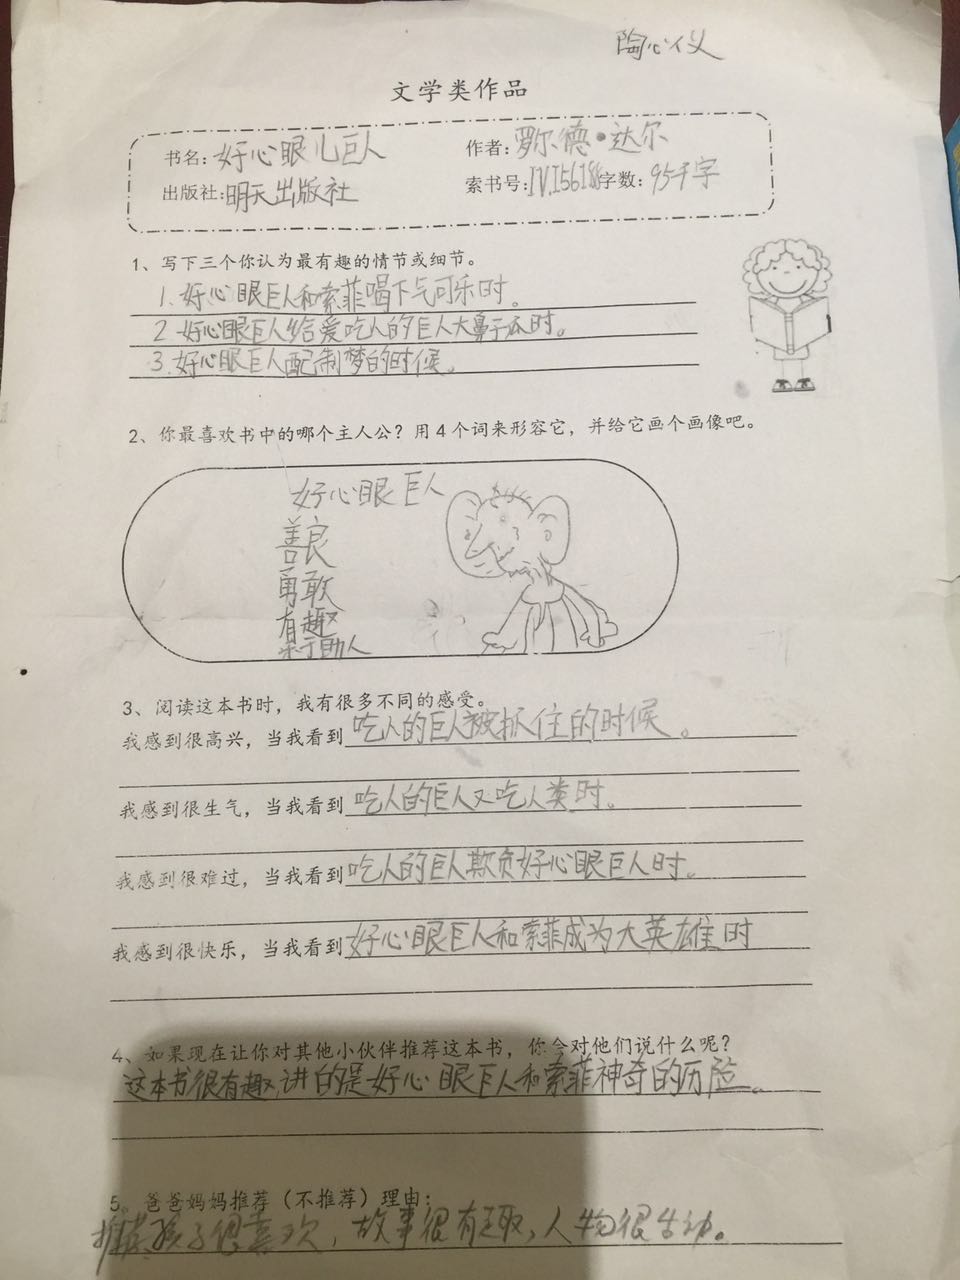 陶心仪
文学类作品
书名:好心眼儿巨人
作者:罗尔德•达尔
出版社:明天出版社
索书号:IV.I561.86字数:95千字
1、写下三个你认为最有趣的情节或细节。
1.好心眼巨人和索菲喝下气可乐时。
2.好心眼巨人给爱吃人的巨人大鼻子瓜时。
3.好心眼巨人配制梦的时候。
2、你最喜欢书中的哪个主人公？用4个词来形容它，并给它画个画像吧。
好心眼巨人
善良
勇敢
有趣
乐于助人
3、阅读这本书时，我有很多不同的感受。
我感到很高兴，当我看到吃人的巨人被抓住的时候。
我感到很生气，当我看到吃人的巨人又吃人类时。
我感到很难过，当我看到吃人的巨人欺负好心眼巨人时。
我感到很快乐，当我看到好心眼巨人和索菲成为大英雄时
4、如果现在让你对其他小伙伴推荐这本书，你会对他们说什么呢？
这本书很有趣,讲的是好心眼巨人和索菲神奇的历险。
5。爸爸妈妈推荐（不推荐）理由:
推荐,孩子很喜欢，故事很有趣,人物很生动。